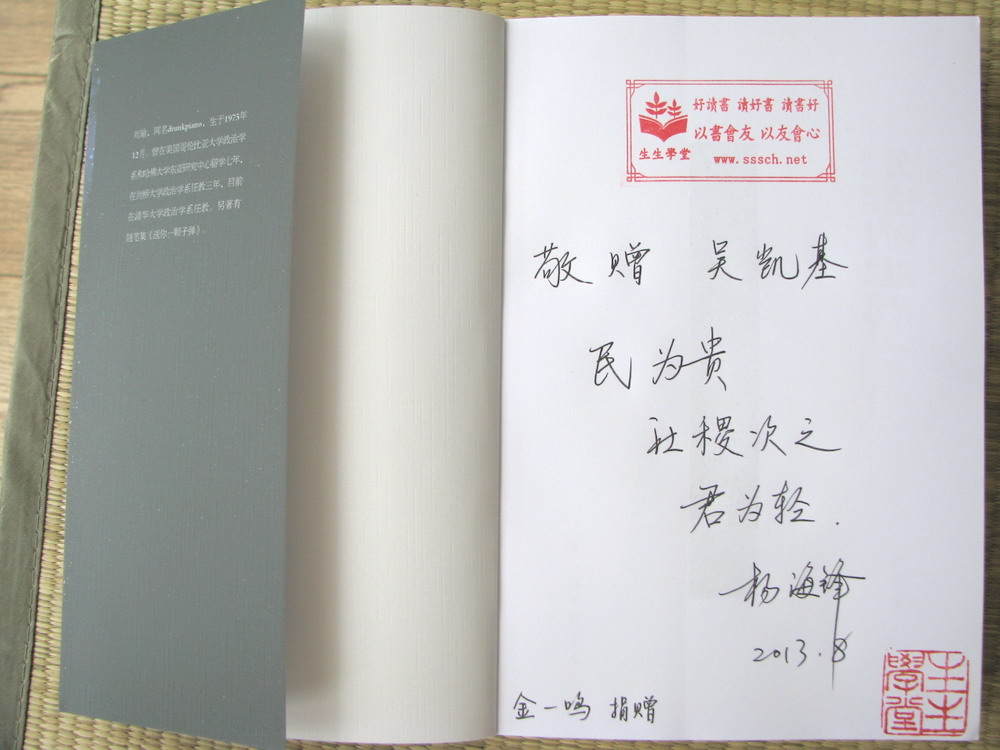 刘瑜，网名drunkpiano，生于1975年
12月。曾在美国哥伦比亚大学政治学
系和哈佛大学东亚研究中心留学七年，
在剑桥大学政治学系任教三年，目前
在清华大学政治学系任教。另著有
随笔集《送你一颗子弹》。
好讀書 讀好書 讀書好
以書會友 以友會心
生生學堂
www.sssch.net
敬赠 吴凯基
民为贵
社稷次之
君为轻.
杨海锋
2013.8
金一鸣 捐赠
生生
學堂